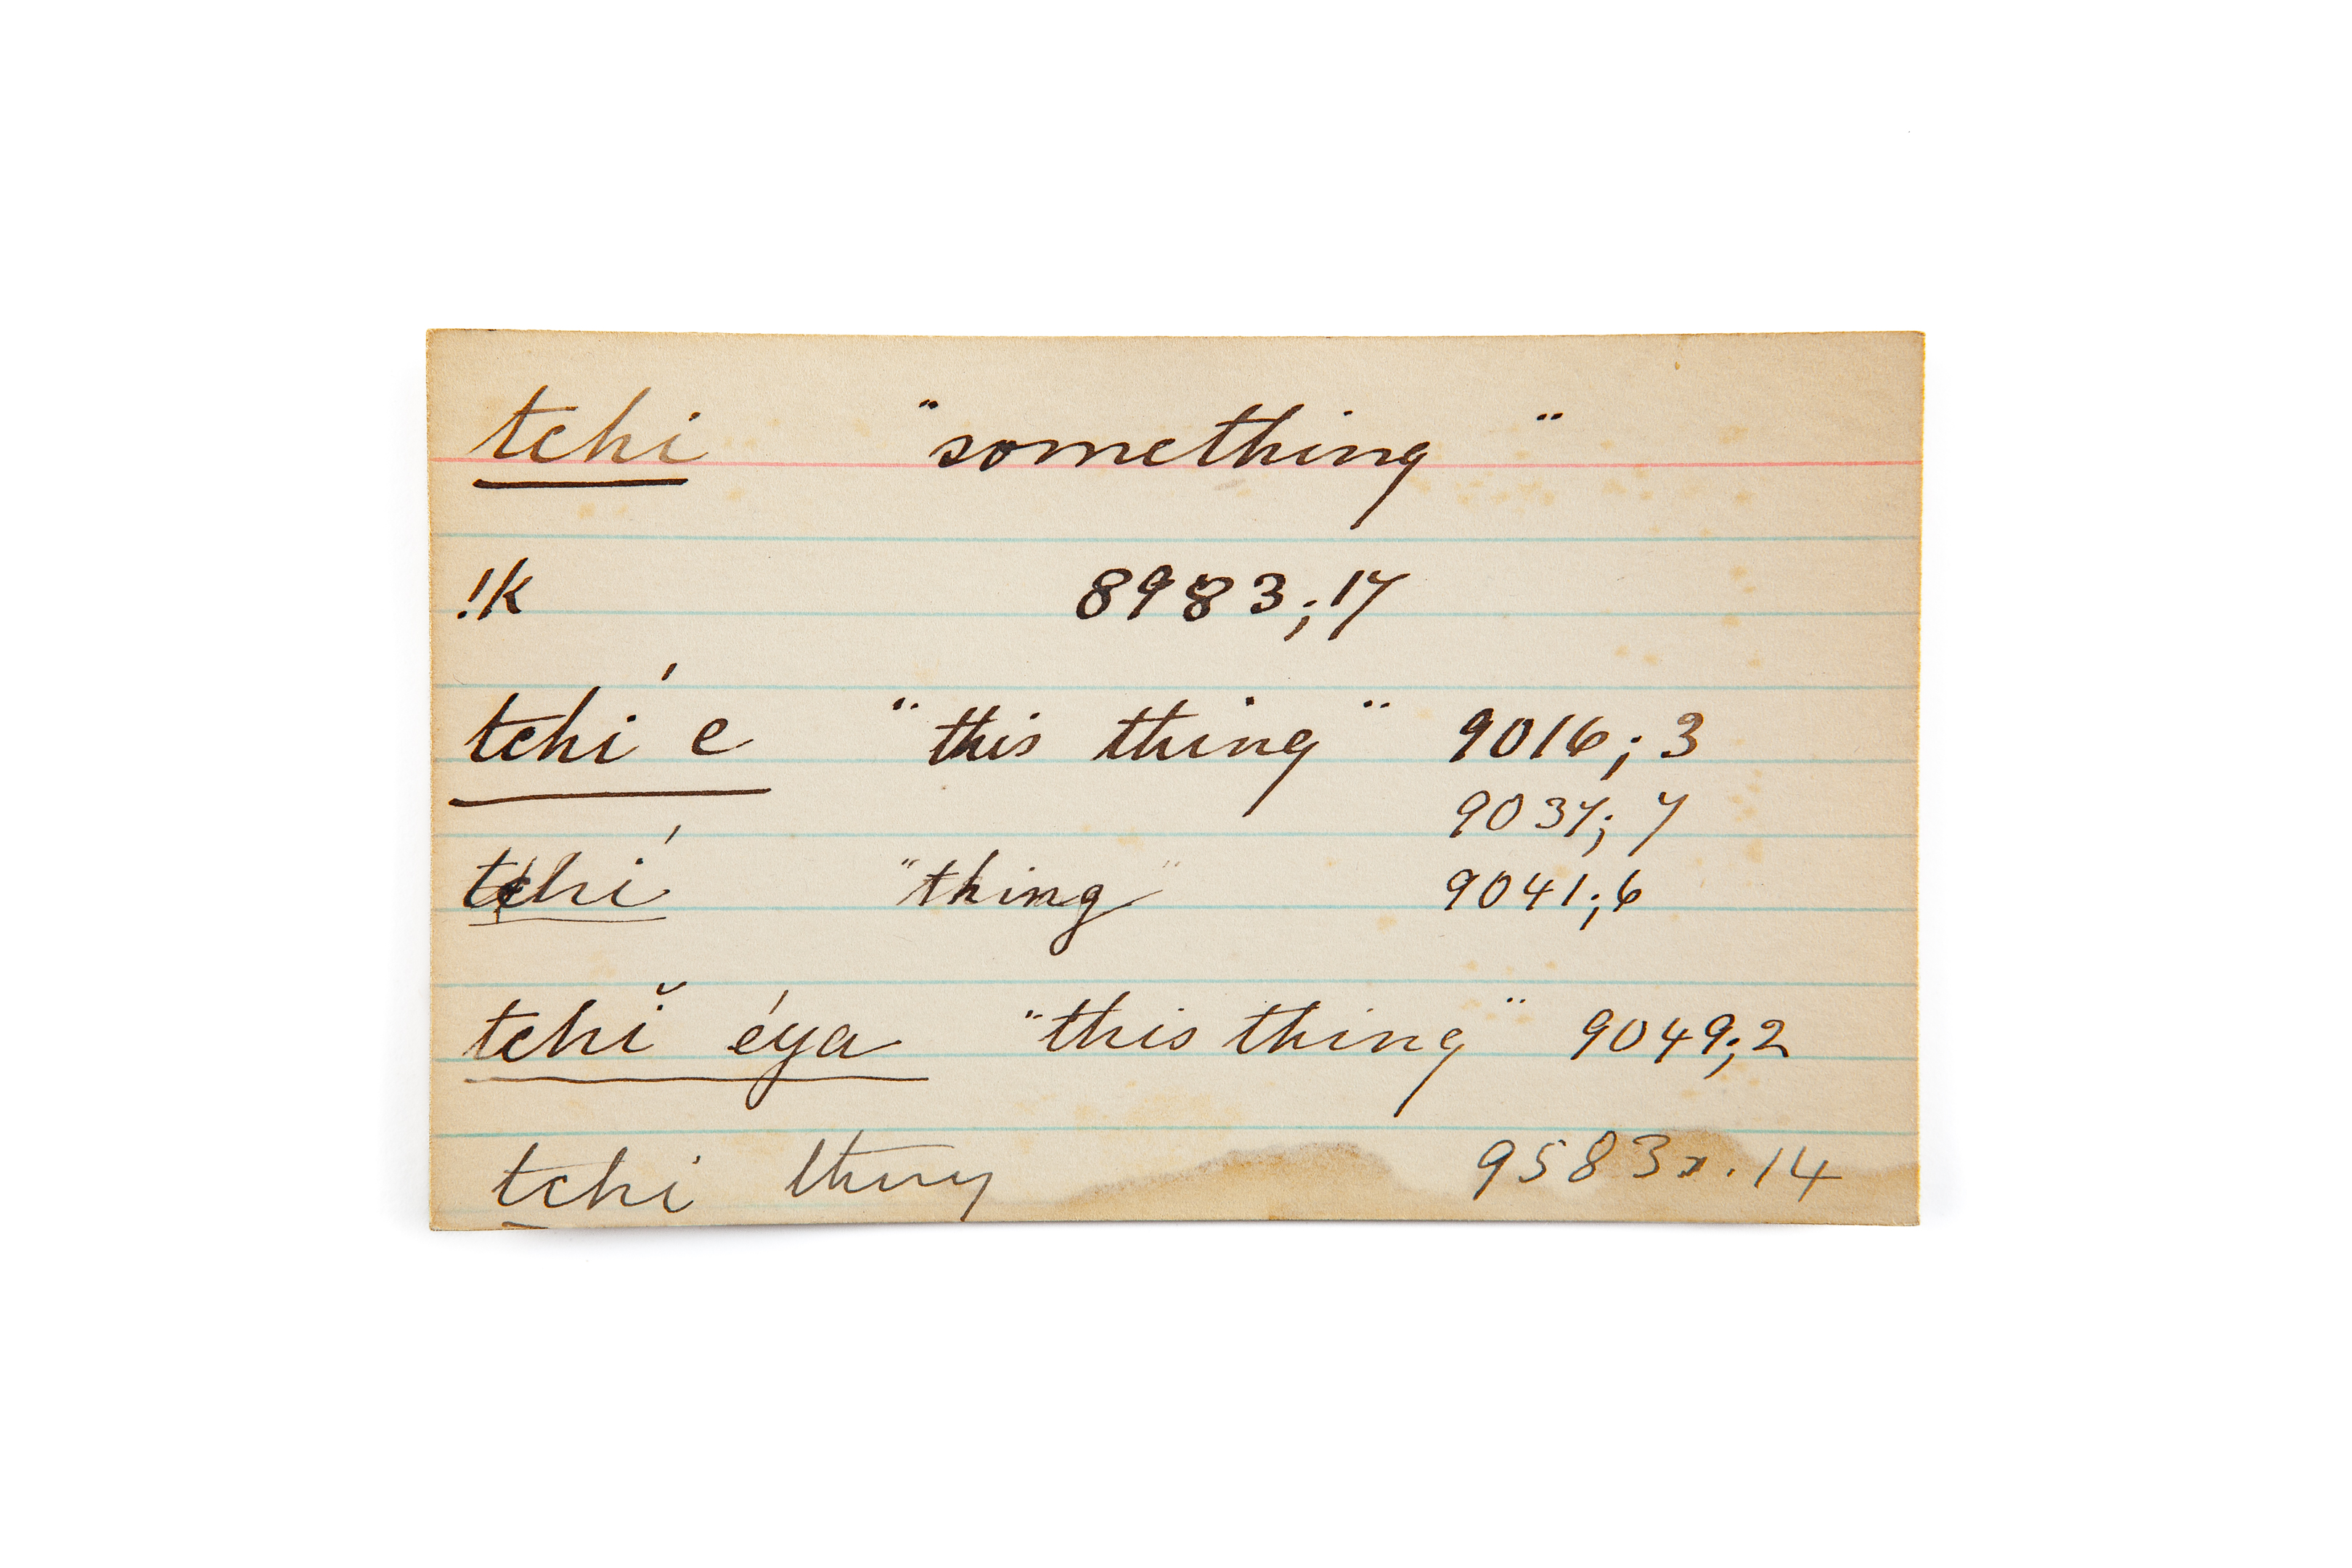 tchi "something"
!k 8983;17
tchí e "this thing" 9016; 3
9037; 7
tchí "thing" 9041;6
tchĭ éya "this thing" 9049;2
tchi thing 9583x.14